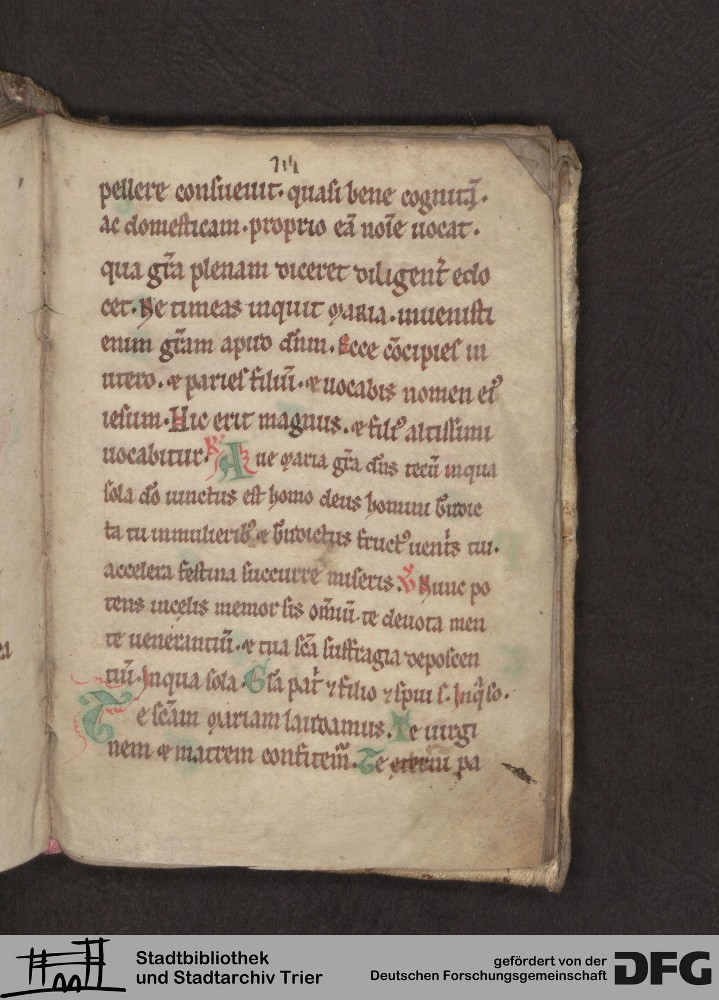 pellere consueuit. quasi bene cognitā.
ac domesticam. proprio eā noīe uocat.
qua gr̄a plenam diceret diligent̄ edo
cet. Ne timeas inquit maria. inuenisti
enim gr̄am apud dn̄m. Ecce cōcipies in
utero. & paries filiū. & uocabis nomen ei⁹
iesum. Hic erit magnus. & fili⁹ altissimi
uocabitur. R̸ Aue maria gr̄a dn̄s tecū inqua
sola dō uinctus est homo deus homini bn̄dic
ta tu in mulierib⁹ & bn̄dictus fruct⁹ uent̄s tui.
accelera festina succurre miseris. V̸ Nunc po
tens in celis memor sis om̄iū te deuota men
te uenerantiū. & tua sc̄a suffragia deposcen
tiū. Inqua sola. Gl̄a pat̄ ⁊ filio ⁊ sp̄ui s̄. Inq̄ so.
Te sc̄am mariam laudamus. Te uirgi
nem & matrem confitem̄. Te pa
Stadtbibliothek
und Stadtarchiv Trier
gefördert von der
Deutschen Forschungsgemeinschaft
DFG